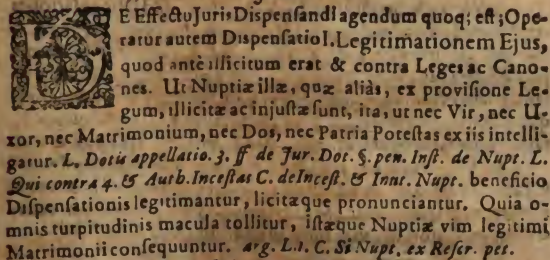 DE Effectu Juris Dispensandi agendum quoq; est; Ope-
ratur autem Dispensatio I. Legitimationem Ejus,
quod antè illicitum erat & contra Leges ac Cano-
nes. Ut Nuptiæ illæ, quæ aliàs, ex provisione Le-
gum, illicitæ ac injustæ sunt, ita, ut nec Vir, nec U-
xor, nec Matrimonium, nec Dos, nec Patria Potestas ex iis intelli-
gatur. L. Dotis appellatio. 3. ff de Jur. Dot. §. pen. Inst. de Nupt. L.
Qui contra 4. & Auth. Incestas C. de Incest. & Inut. Nupt. beneficio
Dispensationis legitimantur, licitæque pronunciantur. Quia o-
mnis turpitudinis macula tollitur, istæque Nuptiæ vim legitimi
Matrimonii consequuntur. arg. L. 1. C. Si Nupt. ex Rescr. pet.